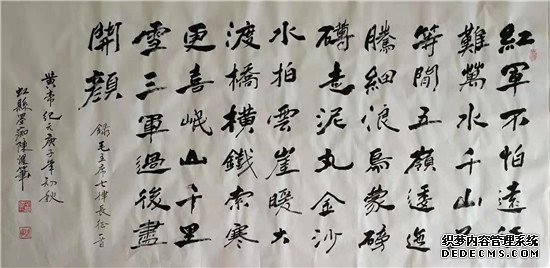 紅軍不怕遠征
難萬水千山只
等間五嶺逶迤
騰細浪烏蒙磅
礴走泥丸金沙
水拍雲崖暖大
渡橋橫鐵索寒
更喜岷山千里
雪三軍過後盡
開顏
錄毛主席七律長征一首
黃帝紀元庚子年初秋
虹縣墨癡陳
织梦内容管理系统
DEDECMS.COM